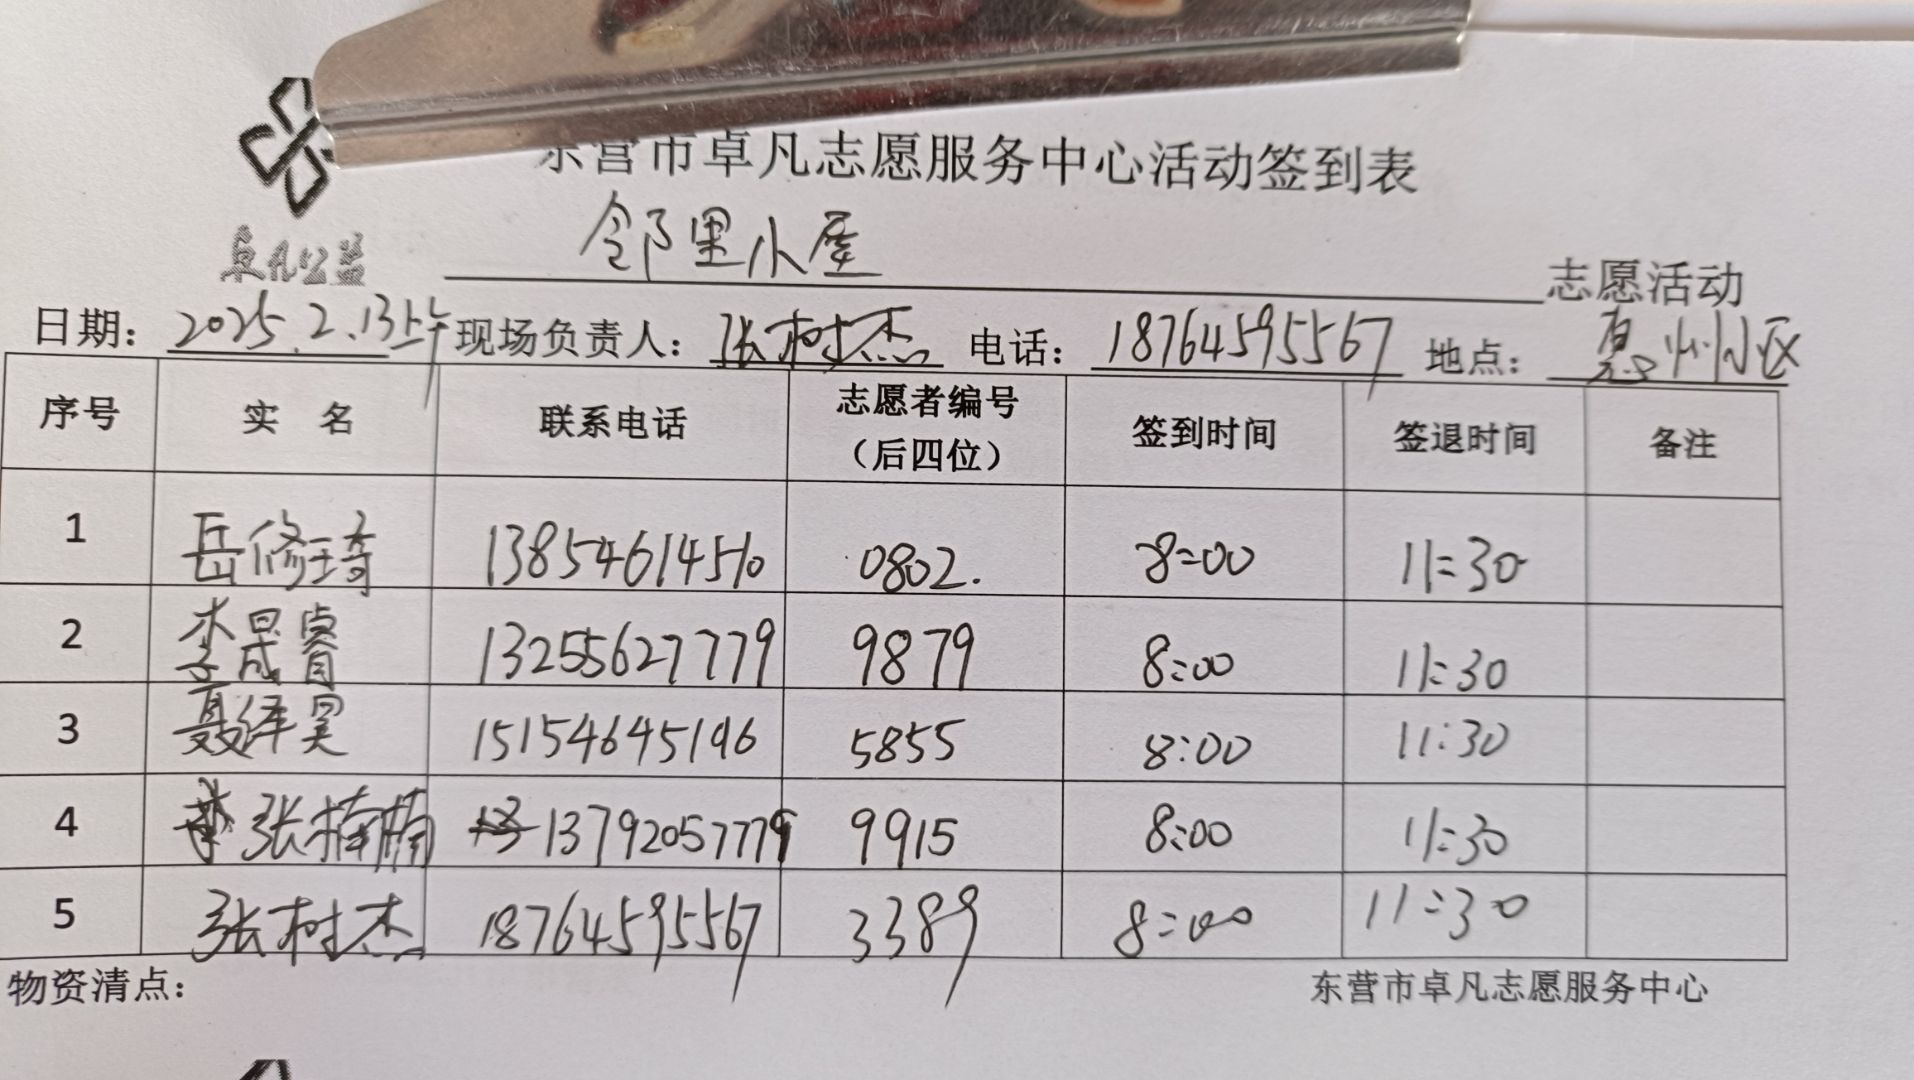 东营市卓凡志愿服务中心活动签到表
卓凡公益
邻里小屋 志愿活动
日期： 2025.2.13上午 现场负责人： 张树杰 电话： 18764595567 地点： 惠州小区
序号 实 名 联系电话 志愿者编号（后四位） 签到时间 签退时间 备注
1 岳修琦 13854614510 0802. 8:00 11:30
2 李晟睿 13255627779 9879 8:00 11:30
3 聂绎昊 15154645196 5855 8:00 11:30
4 张楠楠 13792057779 9915 8:00 11:30
5 张树杰 18764595567 3389 8:00 11:30
物资清点： 东营市卓凡志愿服务中心